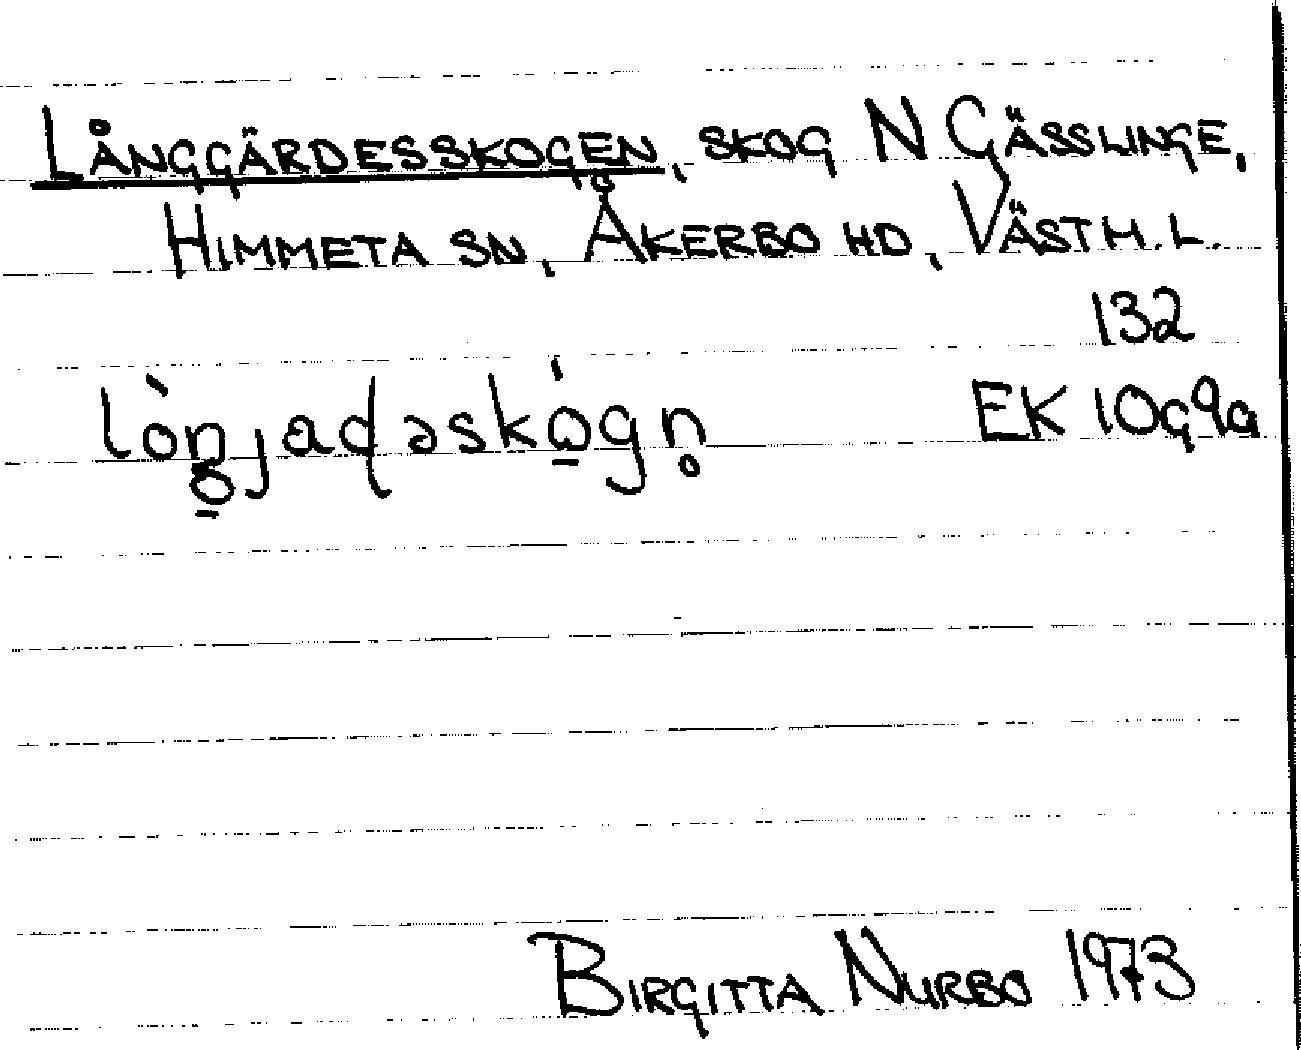 LÅNGGÄRDESSKOGEN, SKOG N GÄSSLINGE,
HIMMETA SN, ÅKERBO HD, VÄSTM. L.
132
EK 10G9a
BIRGITTA NURBO 1973